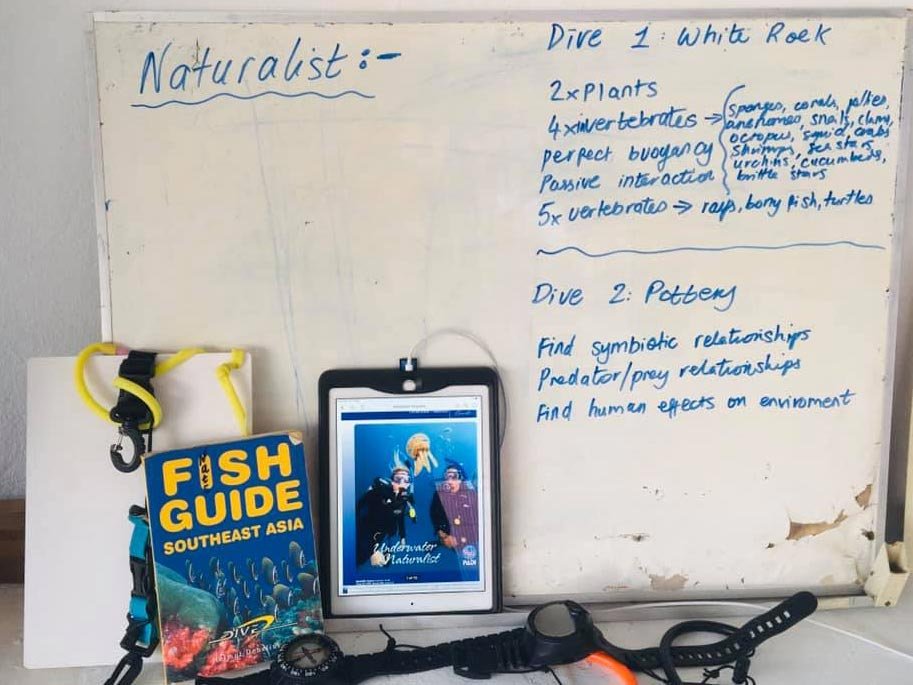 Naturalist :-
Dive 1: White Rock
2x Plants
4x invertebrates → sponges, corals, jellies,
anenomes, snails, clams,
octopus, squid, crabs
shrimps, sea stars
urchins, cucumbers,
brittle stars
perfect buoyancy
Passive interaction
5x vertebrates → rays, bony fish, turtles
Dive 2: Pottery
Find symbiotic relationships
Predator/prey relationships
Find human effects on enviroment
FISH
GUIDE
SOUTHEAST ASIA
DIVE
Underwater
Naturalist
PADI